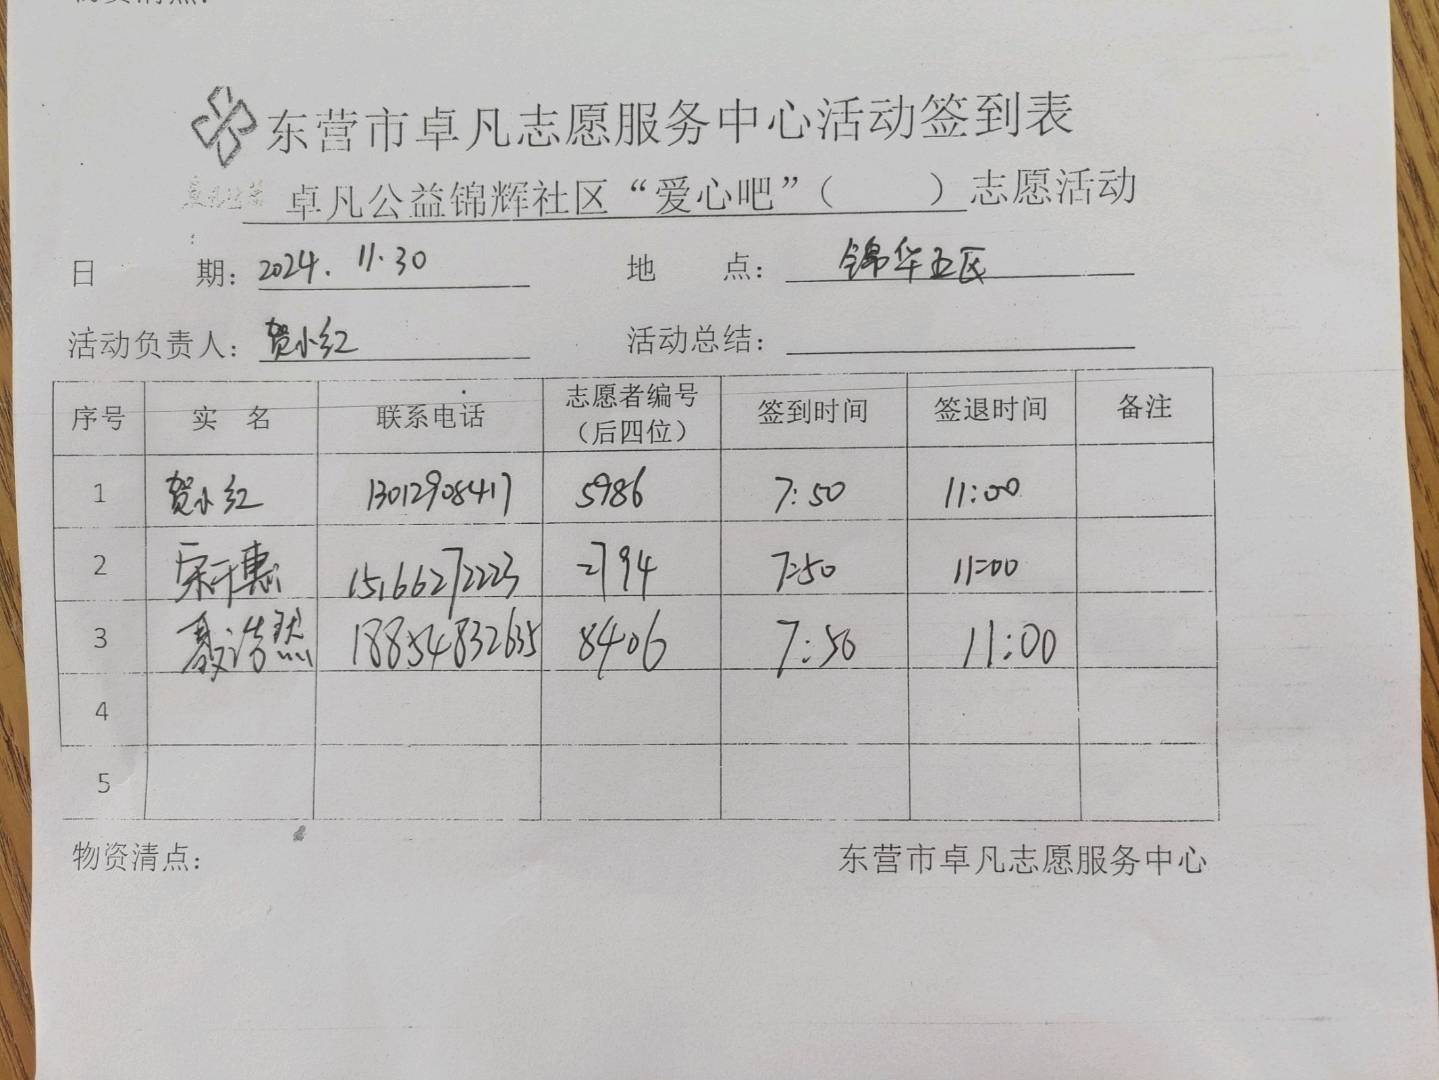 东营市卓凡志愿服务中心活动签到表
卓凡公益锦辉社区“爱心吧”（　　）志愿活动
日　期：2024.11.30　地　点：锦华五区
活动负责人：贺小红　活动总结：
序号　实　名　联系电话　志愿者编号（后四位）　签到时间　签退时间　备注
1　贺小红　13012908417　5986　7:50　11:00
2　15166272223　2794　7:50　11:00
3　浩然　18854832635　8406　7:50　11:00
4
5
物资清点：　东营市卓凡志愿服务中心